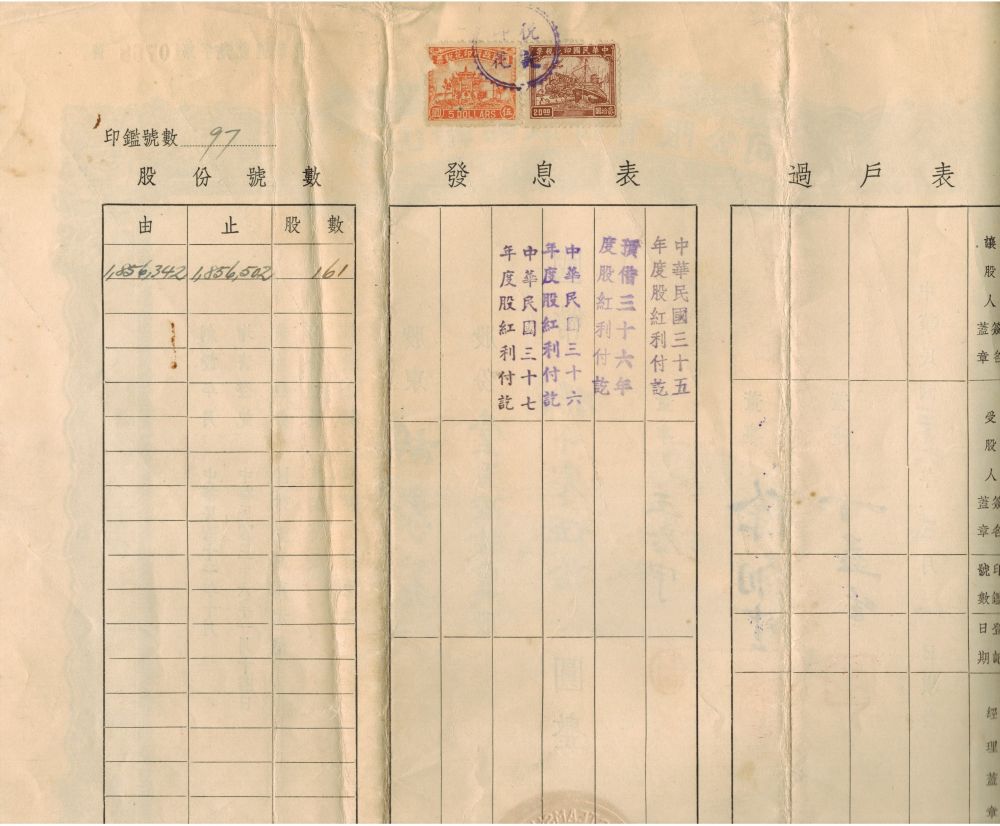 中華民國印花稅票
5 DOLLARS
伍
圓
20.00
印鑑號數 97
股份號數
由 止 股數
1,856,342 1,856,502 161
發息表
中華民國三十五
年度股紅利付訖
預借三十六年
度股紅利付訖
中華民國三十六
年度股紅利付訖
中華民國三十七
年度股紅利付訖
過戶表
讓股人簽名蓋章
受股人簽名蓋章
印鑑號數
登記日期
經理蓋章